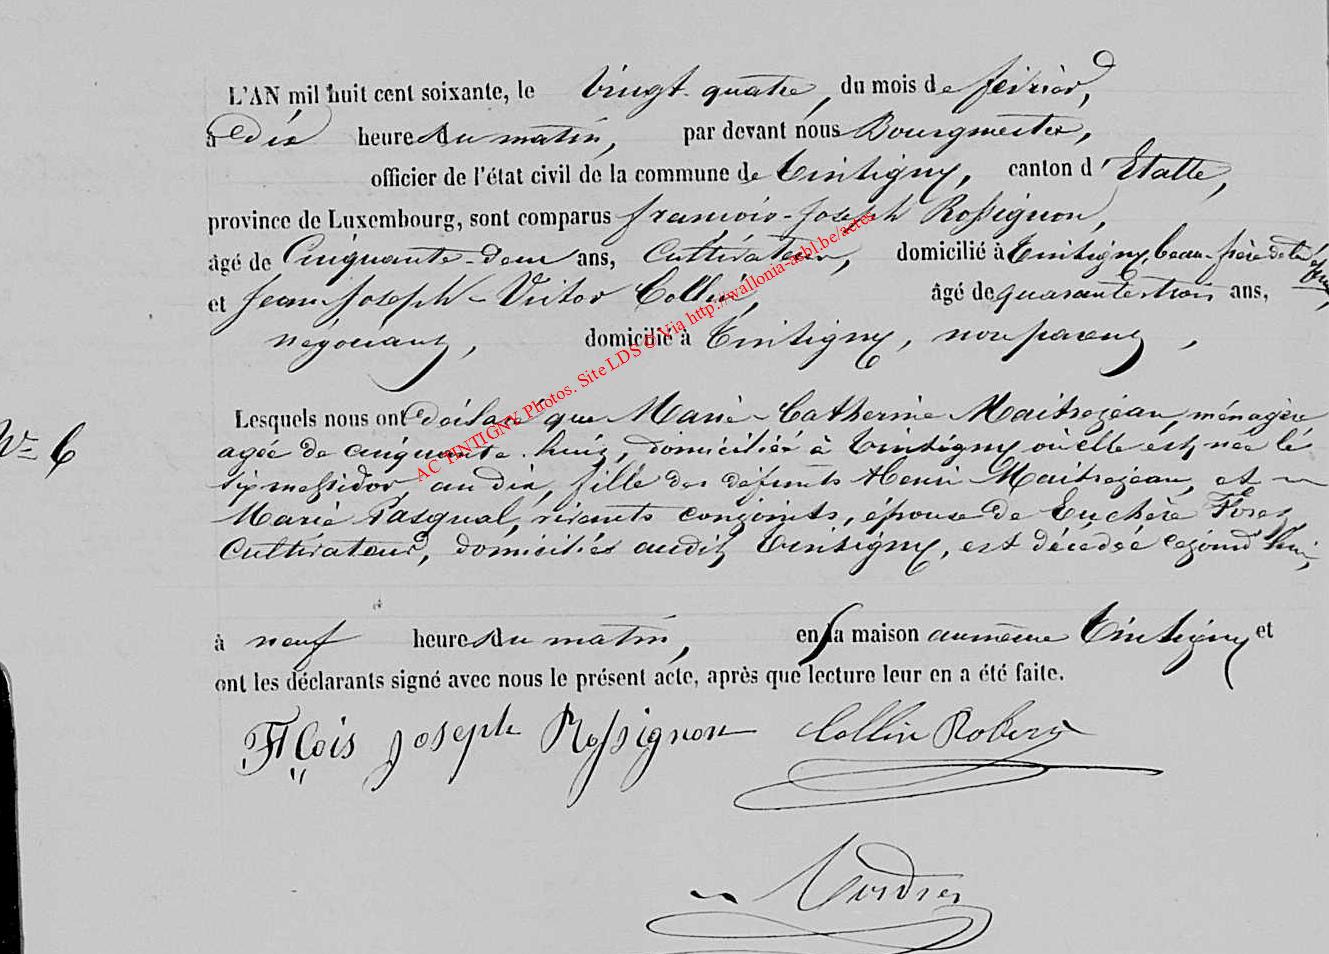 L'AN mil huit cent soixante, le vingt-quatre, du mois de février,
à dix heures du matin, par devant nous Bourgmestre,
officier de l'état civil de la commune de Tintigny, canton d'Etalle,
province de Luxembourg, sont comparus françois-Joseph Rossignon,
âgé de Cinquante-deux ans, Cultivateur, domicilié à Tintigny, beau-frère de la
et Jean-Joseph-Victor Collin, âgé de quarante trois ans,
négociant, domicilié à Tintigny, non parent,
Nº 6
Lesquels nous ont déclaré que Marie-Catherine Maitrejean, ménagère
agée de cinquante-huit, domiciliée à Tintigny où elle est née le
six messidor an dix, fille des défunts Henri Maitrejean, et
Marie Pasqual, vivants conjoints, épouse de Euchère
Cultivateur, domiciliés audit Tintigny, est décédée cejourd'hui,
à neuf heures du matin, en sa maison au même Tintigny et
ont les déclarants signé avec nous le présent acte, après que lecture leur en a été faite.
Fçois Joseph Rossignon Collin
AC TINTIGNY Photos. Site LDS © Via http://wallonia-asbl.be/actes